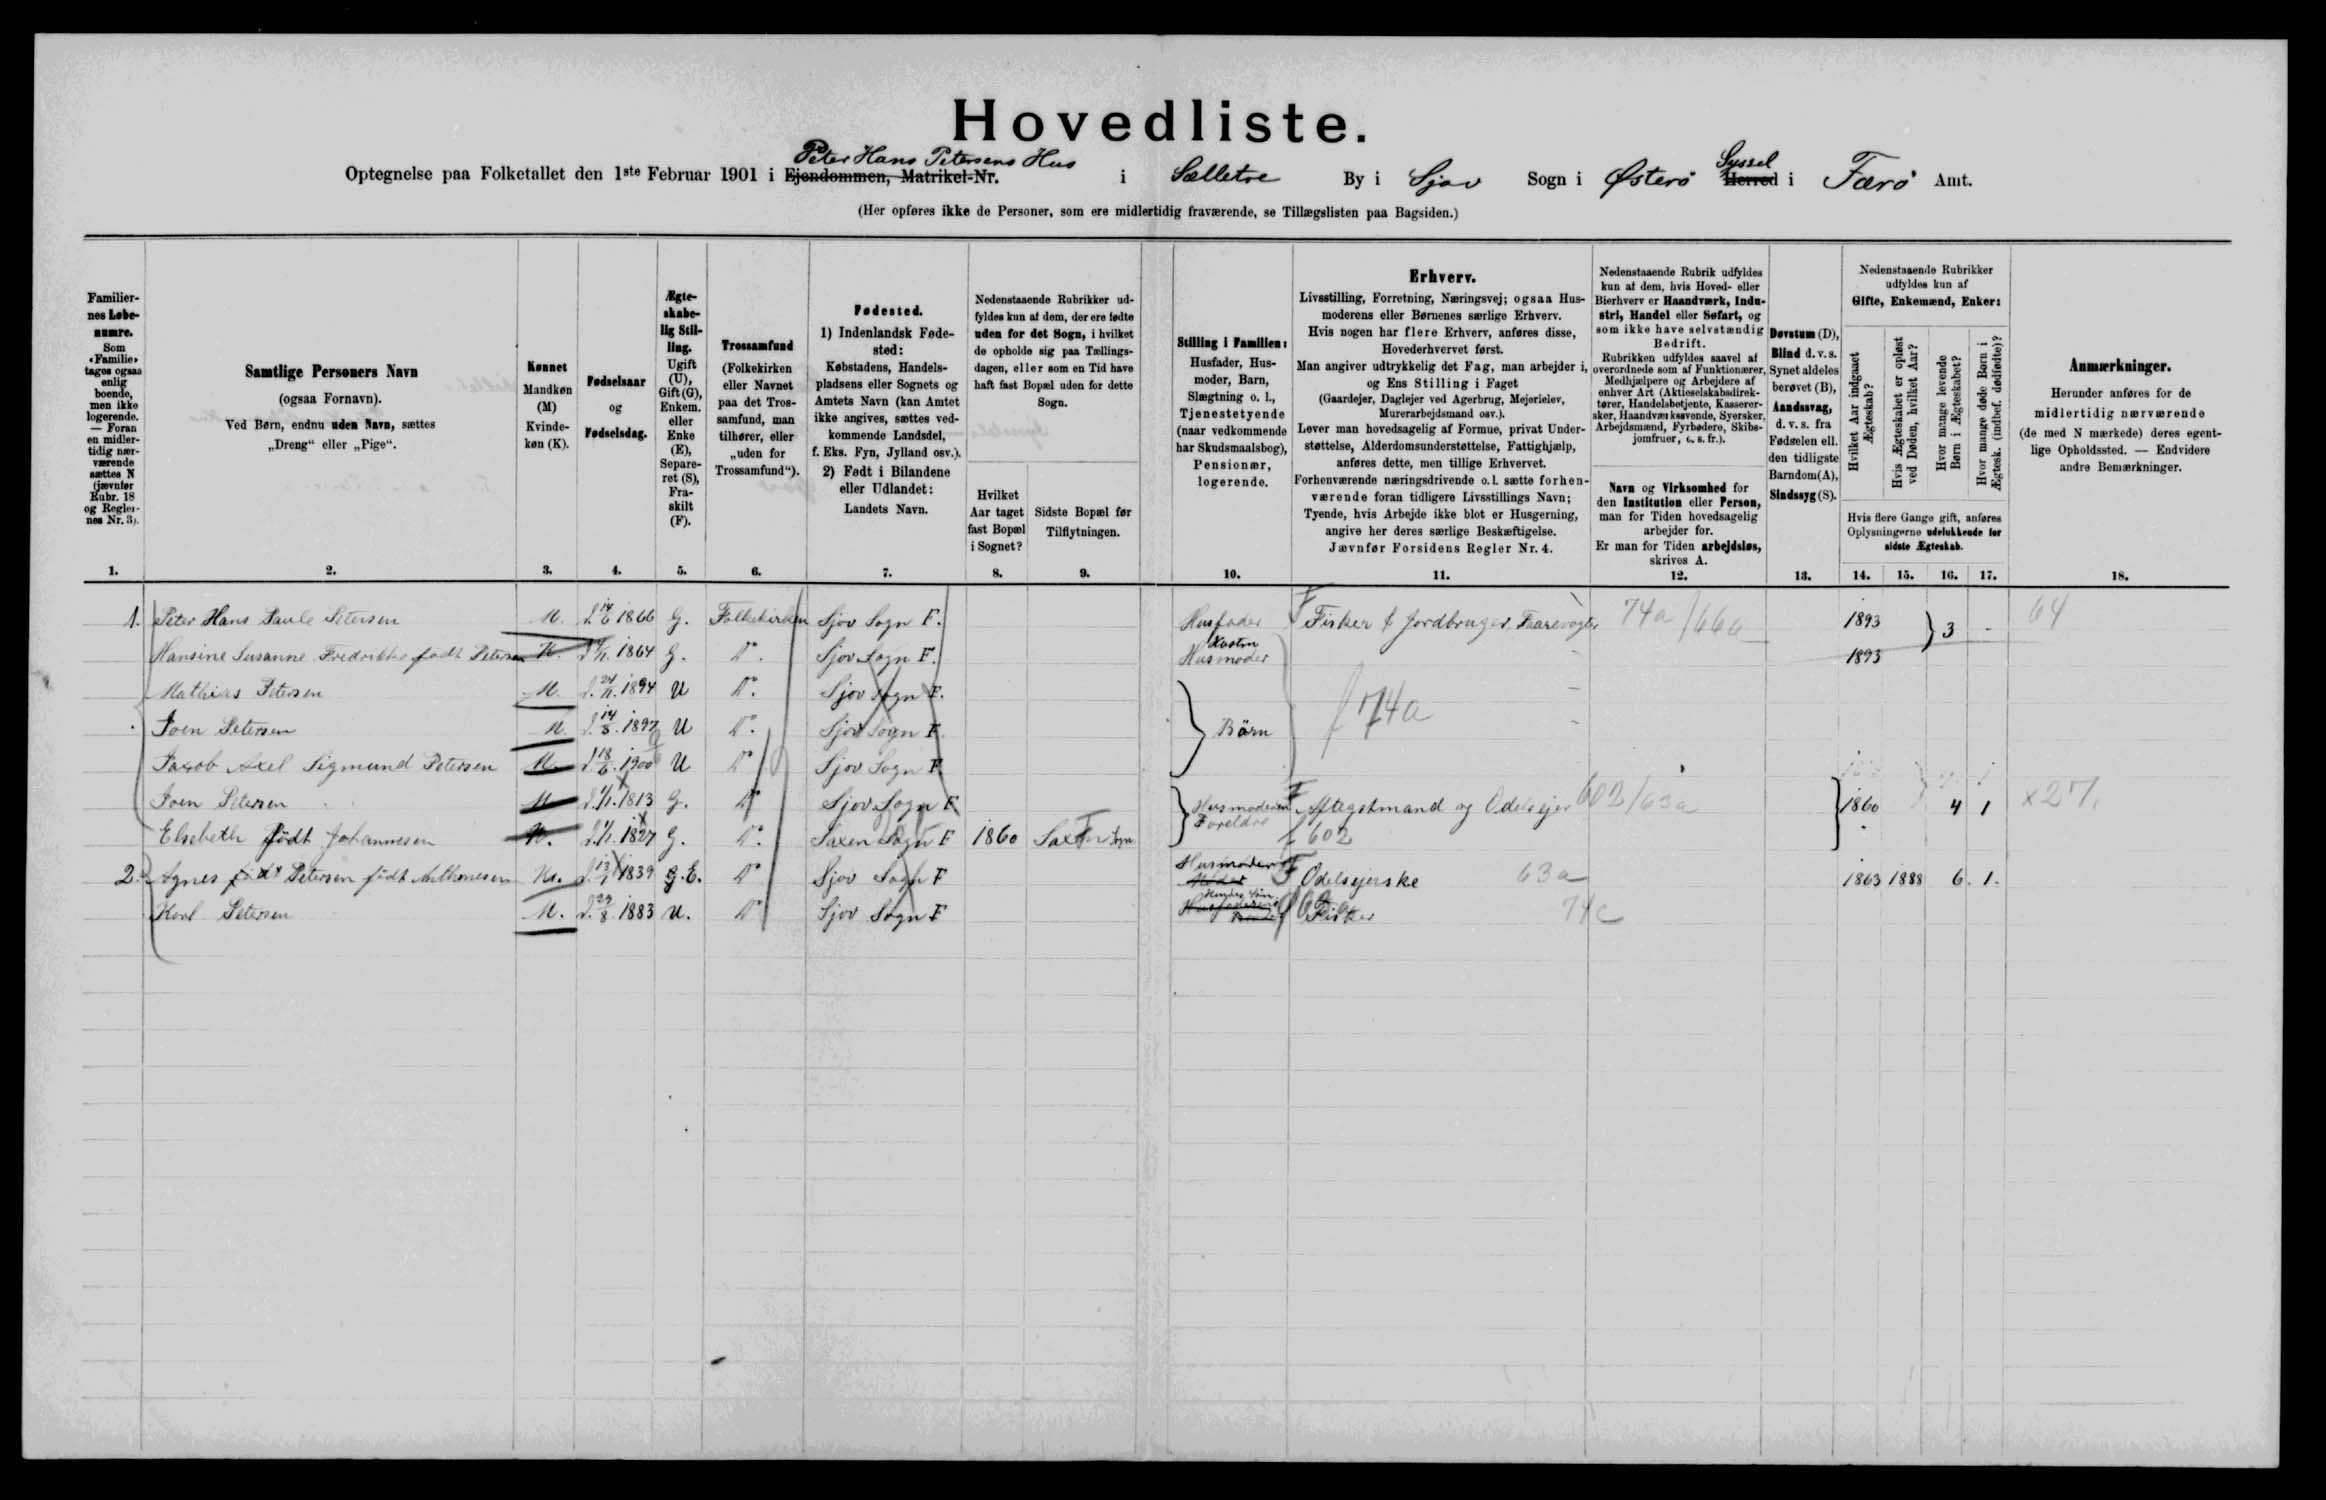 Hovedliste.
Optegnelse paa Folketallet den 1ste Februar 1901 i Ejendommen, Matrikel-Nr. Peter Hans Petersens Hus i Selletre By i Sjov Sogn i Østerö Herred Syssel i Færö Amt.
(Her opføres ikke de Personer, som ere midlertidig fraværende, se Tillægslisten paa Bagsiden.)
Familiernes Løbenumre.
Som «Familie» tages ogsaa enlig boende, men ikke logerende. — Foran en midlertidig nærværende sættes N (jævnfør Rubr. 18 og Reglernes Nr. 3).
1.
Samtlige Personers Navn
(ogsaa Fornavn).
Ved Børn, endnu uden Navn, sættes
„Dreng“ eller „Pige“.
2.
Kønnet
Mandkøn (M)
Kvindekøn (K).
3.
Fødselsaar
og
Fødselsdag.
4.
Ægteskabelig Stilling.
Ugift (U), Gift (G), Enkem. eller Enke (E), Separeret (S), Fraskilt (F).
5.
Trossamfund
(Folkekirken eller Navnet paa det Trossamfund, man tilhører, eller „uden for Trossamfund“).
6.
Fødested.
1) Indenlandsk Fødested:
Købstadens, Handelspladsens eller Sognets og Amtets Navn (kan Amtet ikke angives, sættes vedkommende Landsdel, f. Eks. Fyn, Jylland osv.).
2) Født i Bilandene eller Udlandet:
Landets Navn.
7.
Nedenstaaende Rubrikker udfyldes kun af dem, der ere fødte uden for det Sogn, i hvilket de opholde sig paa Tællingsdagen, eller som en Tid have haft fast Bopæl uden for dette Sogn.
Hvilket Aar taget fast Bopæl i Sognet?
8.
Sidste Bopæl før Tilflytningen.
9.
Stilling i Familien:
Husfader, Husmoder, Barn, Slægtning o. l., Tjenestetyende (naar vedkommende har Skudsmaalsbog), Pensionær, logerende.
10.
Erhverv.
Livsstilling, Forretning, Næringsvej; ogsaa Husmoderens eller Børnenes særlige Erhverv.
Hvis nogen har flere Erhverv, anføres disse, Hovederhvervet først.
Man angiver udtrykkelig det Fag, man arbejder i, og Ens Stilling i Faget
(Gaardejer, Daglejer ved Agerbrug, Mejerielev, Murerarbejdsmand osv.).
Lever man hovedsagelig af Formue, privat Understøttelse, Alderdomsunderstøttelse, Fattighjælp, anføres dette, men tillige Erhvervet.
Forhenværende næringsdrivende o. l. sætte forhenværende foran tidligere Livsstillings Navn;
Tyende, hvis Arbejde ikke blot er Husgerning, angive her deres særlige Beskæftigelse.
Jævnfør Forsidens Regler Nr. 4.
11.
Nedenstaaende Rubrik udfyldes kun af dem, hvis Hoved- eller Bierhverv er Haandværk, Industri, Handel eller Søfart, og som ikke have selvstændig Bedrift.
Rubrikken udfyldes saavel af overordnede som af Funktionærer, Medhjælpere og Arbejdere af enhver Art (Aktieselskabsdirektører, Handelsbetjente, Kasserersker, Haandværkssvende, Syersker, Arbejdsmænd, Fyrbødere, Skibsjomfruer, o. s. fr.).
Navn og Virksomhed for den Institution eller Person, man for Tiden hovedsagelig arbejder for.
Er man for Tiden arbejdsløs, skrives A.
12.
Døvstum (D), Blind d. v. s. Synet aldeles berøvet (B), Aandssvag, d. v. s. fra Fødselen ell. den tidligste Barndom (A), Sindssyg (S).
13.
Nedenstaaende Rubrikker udfyldes kun af
Gifte, Enkemænd, Enker:
Hvilket Aar indgaaet Ægteskab?
Hvis Ægteskabet er opløst ved Døden, hvilket Aar?
Hvor mange levende Børn i Ægteskabet?
Hvor mange døde Børn i Ægtesk. (indbef. dødfødte)?
Hvis flere Gange gift, anføres Oplysningerne udelukkende for sidste Ægteskab.
14. 15. 16. 17.
Anmærkninger.
Herunder anføres for de midlertidig nærværende (de med N mærkede) deres egentlige Opholdssted. — Endvidere andre Bemærkninger.
18.
1. Peter Hans Paule Petersen M. d. 14/6 1866 G. Folkekirken Sjov Sogn F. Husfader F Fisker & Jordbruger, Faarevogter 74a/66a 1893 3 - 64
Hansine Susanne Fredrikke født Petersen K. 1864 G. Do. Sjov Sogn F. Kosten Husmoder 1893
Mathias Petersen M. d. 24/11. 1894 U Do. Sjov Sogn F.
Joen Petersen M. d. 14/8. 1897 U Do. Sjov Sogn F. Börn f 74a
Jakob Axel Sigmund Petersen M. d. 18/6. 1900 U Do Sjov Sogn F
Joen Petersen M d. 1/1. 1813 G. Do Sjov Sogn F Husmoderens Foreldre F Aftægstmand og Odelsejer 602/63a 1860 4 1 x27.
Elsebeth födt Johannesen K. d. 1/1. 1827 G. Do. Saxen Sogn F 1860 Saxen Sogn f 602
2. Agnes født Petersen født Anthonesen K. d. 13/1 1839 G. E. Do Sjov Sogn F Husmoder Moder F Odelsejerske 63a 1863 1888 6. 1.
Karl Petersen M. d. 29/8. 1883 U. Do Sjov Sogn F Hendes Sön Husfaderens Fisker 74c